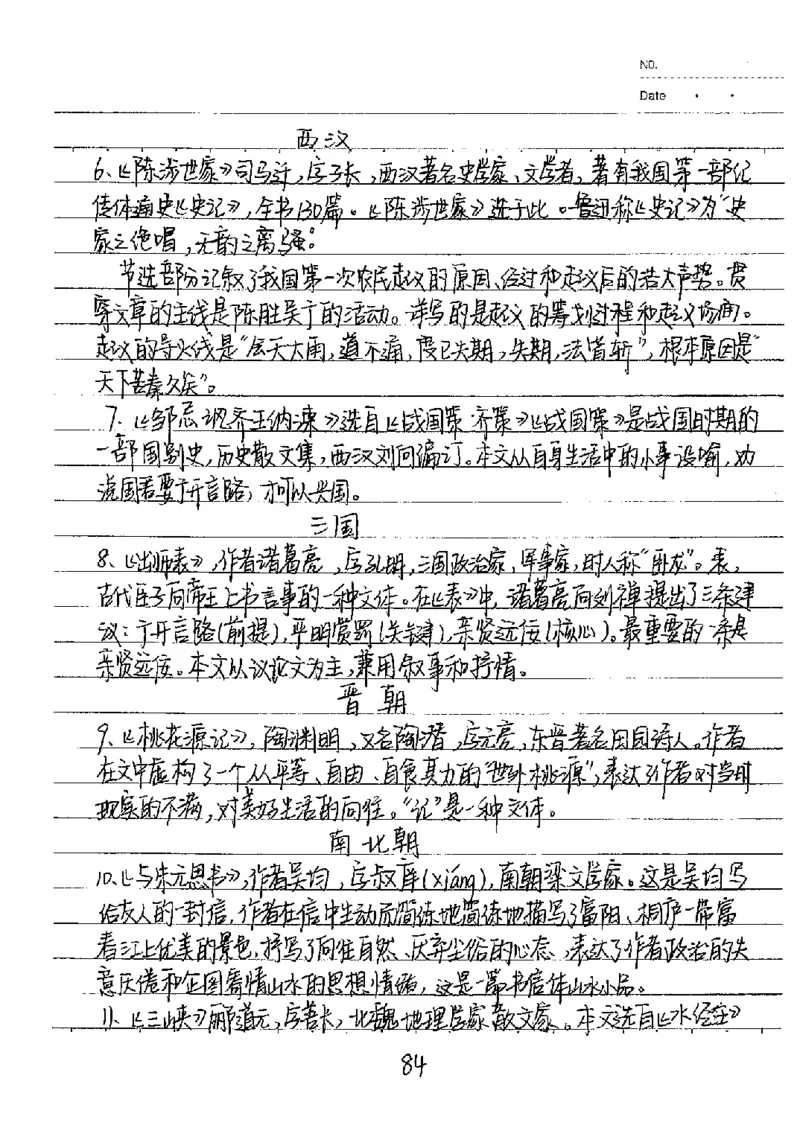 NO.
Date
西汉
6、《陈涉世家》司马迁,字子长,西汉著名史学家、文学者,著有我国第一部纪
传体通史《史记》,全书130篇。《陈涉世家》选于此。鲁迅称《史记》为“史
家之绝唱,无韵之离骚”。
节选部分记叙了我国第一次农民起义的原因、经过和起义后的浩大声势。贯
穿文章的主线是陈胜吴广的活动。详写的是起义的筹划过程和起义场面。
起义的导火线是“会天大雨,道不通,度已失期,失期,法皆斩”,根本原因是“
天下苦秦久矣”。
7、《邹忌讽齐王纳谏》选自《战国策·齐策》《战国策》是战国时期的
一部国别史,历史散文集,西汉刘向编订。本文从自身生活中的小事设喻,劝
说国君要广开言路,才可以兴国。
三国
8、《出师表》,作者诸葛亮,字孔明,三国政治家,军事家,时人称“卧龙”。表,
古代臣子向帝王上书言事的一种文体。在《表》中,诸葛亮向刘禅提出了三条建
议:广开言路(前提),平明赏罚(关键),亲贤远佞(核心)。最重要的一条是
亲贤远佞。本文以议论文为主,兼用叙事和抒情。
晋朝
9、《桃花源记》,陶渊明,又名陶潜,字元亮,东晋著名田园诗人。作者
在文中虚构了一个人平等、自由、自食其力的“世外桃源”,表达了作者对当时
现实的不满,对美好生活的向往。“记”是一种文体。
南北朝
10、《与朱元思书》,作者吴均,字叔庠(xiáng),南朝梁文学家。这是吴均写
给友人的一封信,作者在信中生动而简练地简练地描写了富阳、桐庐一带富
春江上优美的景色,抒写了向往自然、厌弃尘俗的心态,表达了作者政治的失
意厌倦和企图寄情山水的思想情绪,这是一篇书信体山水小品。
11、《三峡》郦道元,字善长,北魏地理学家散文家。本文选自《水经注》
84